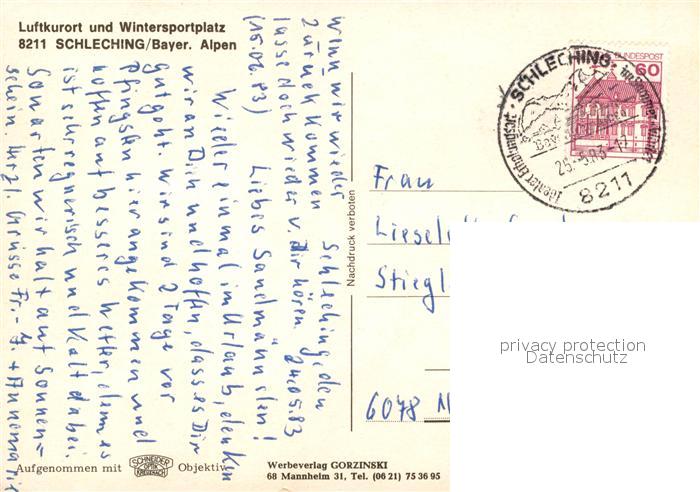 Luftkurort und Wintersportplatz
8211 SCHLECHING/Bayer. Alpen
Schleching, den
24.05.83
Liebes Sandmännlein!
Wieder einmal im Urlaub, denken
wir an Dich und hoffen, dass es Dir
gut geht. Wir sind 2 Tage vor
Pfingsten hier angekommen und
hoffen auf besseres Wetter, denn es
ist sehr regnerisch und kalt dabei.
So warten wir halt auf Sonnen=
schein. Herzl. Grüsse Fr.- + Annemarie
Wenn wir wieder
zurück kommen
(15.06.83)
lasse doch wieder v. Dir hören.
Nachdruck verboten
SCHLECHING
8211
BUNDESPOST
60
Frau
Stiegl
6078
privacy protection
Datenschutz
Aufgenommen mit SCHNEIDER OPTIK KREUZNACH Objektiv
Werbeverlag GORZINSKI
68 Mannheim 31, Tel. (06 21) 75 36 95